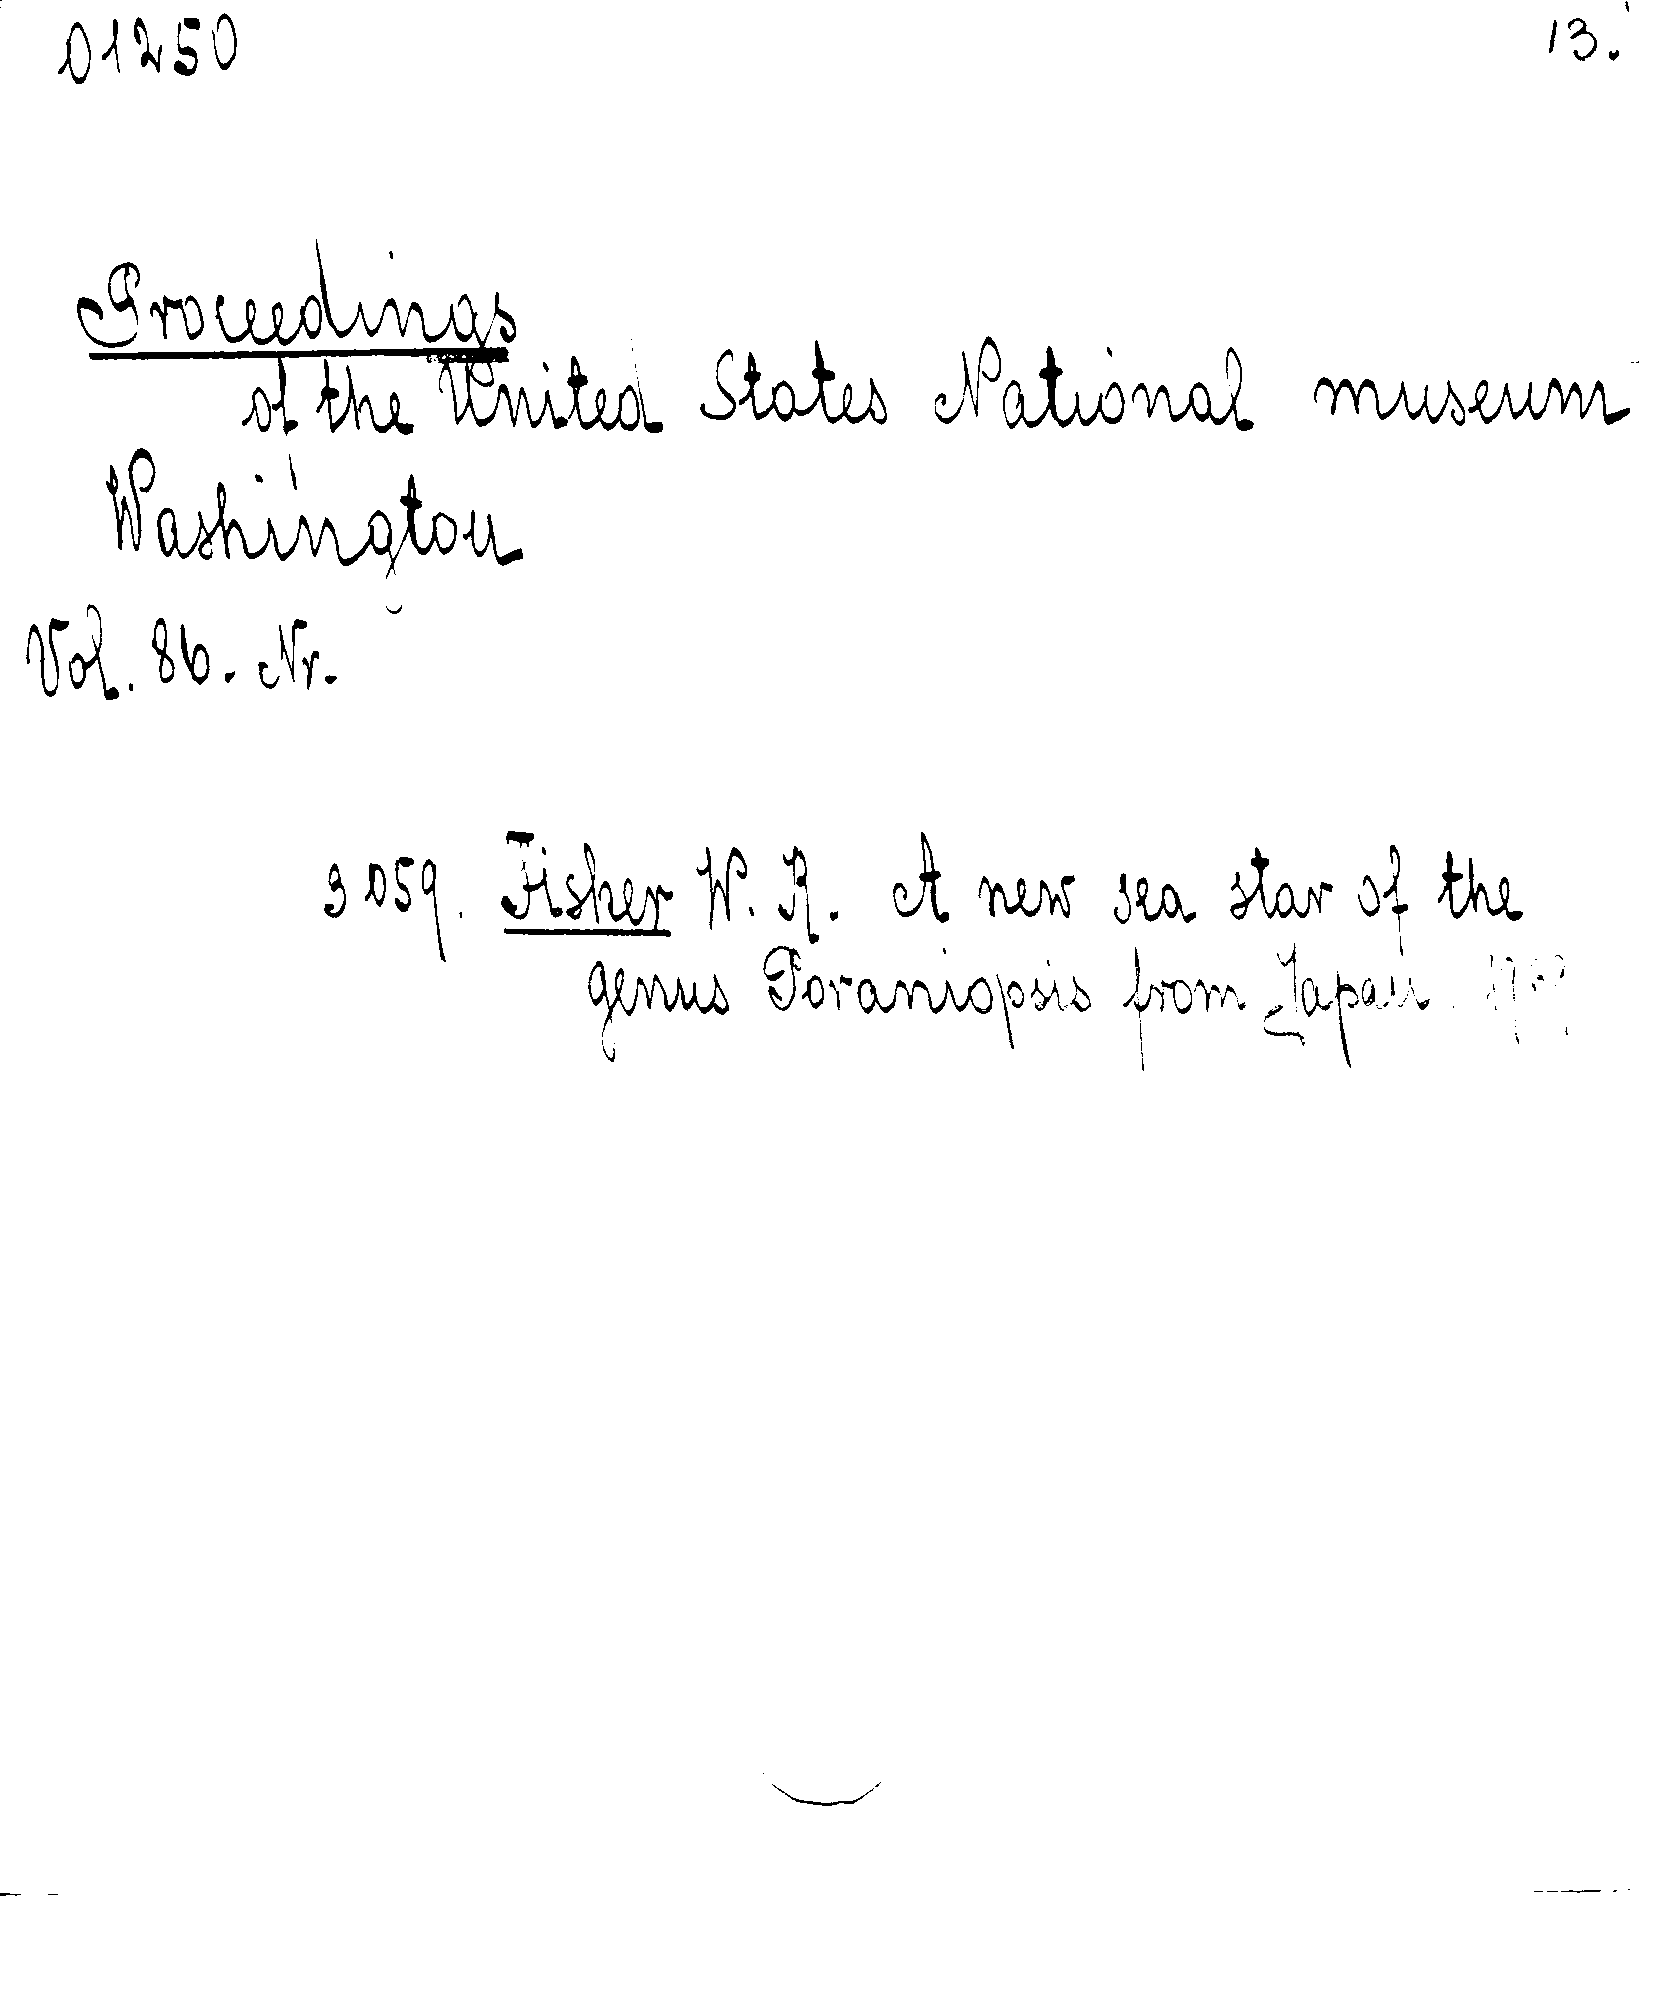 01250
13.
Proceedings
of the United States National museum
Washington
Vol. 86. Nr.
3059. Fisher W. R. A new sea star of the
genus Poraniopsis from Japan.